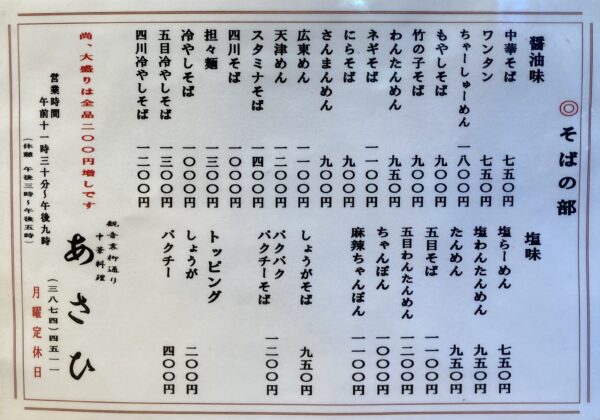 ◎そばの部
醤油味
中華そば 七五〇円
ワンタン 七五〇円
ちゃーしゅーめん 一八〇〇円
もやしそば 九〇〇円
竹の子そば 九〇〇円
わんたんめん 九五〇円
ネギそば 一一〇〇円
にらそば 九〇〇円
さんまんめん 九〇〇円
広東めん 一一〇〇円
天津めん 一一〇〇円
スタミナそば 一四〇〇円
四川そば 一〇〇〇円
担々麺 一三〇〇円
冷やしそば 一〇〇〇円
五目冷やしそば 一三〇〇円
四川冷やしそば 一二〇〇円
塩味
塩らーめん 七五〇円
塩わんたんめん 九五〇円
たんめん 九五〇円
五目そば 一一〇〇円
五目わんたんめん 一二〇〇円
ちゃんぽん 一〇〇〇円
麻辣ちゃんぽん 一一〇〇円
しょうがそば 九五〇円
パクパク
パクチーそば 一二〇〇円
トッピング
しょうが 二〇〇円
パクチー 四〇〇円
尚、大盛りは全品二〇〇円増しです
営業時間
午前十一時三十分～午後九時
(休憩 午後三時～午後五時)
観音裏柳通り
中華料理
あさひ
(三八七四)四五一一
月曜定休日